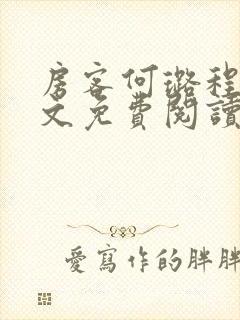 房客何璐程
文免費閱讀
愛寫作的胖胖